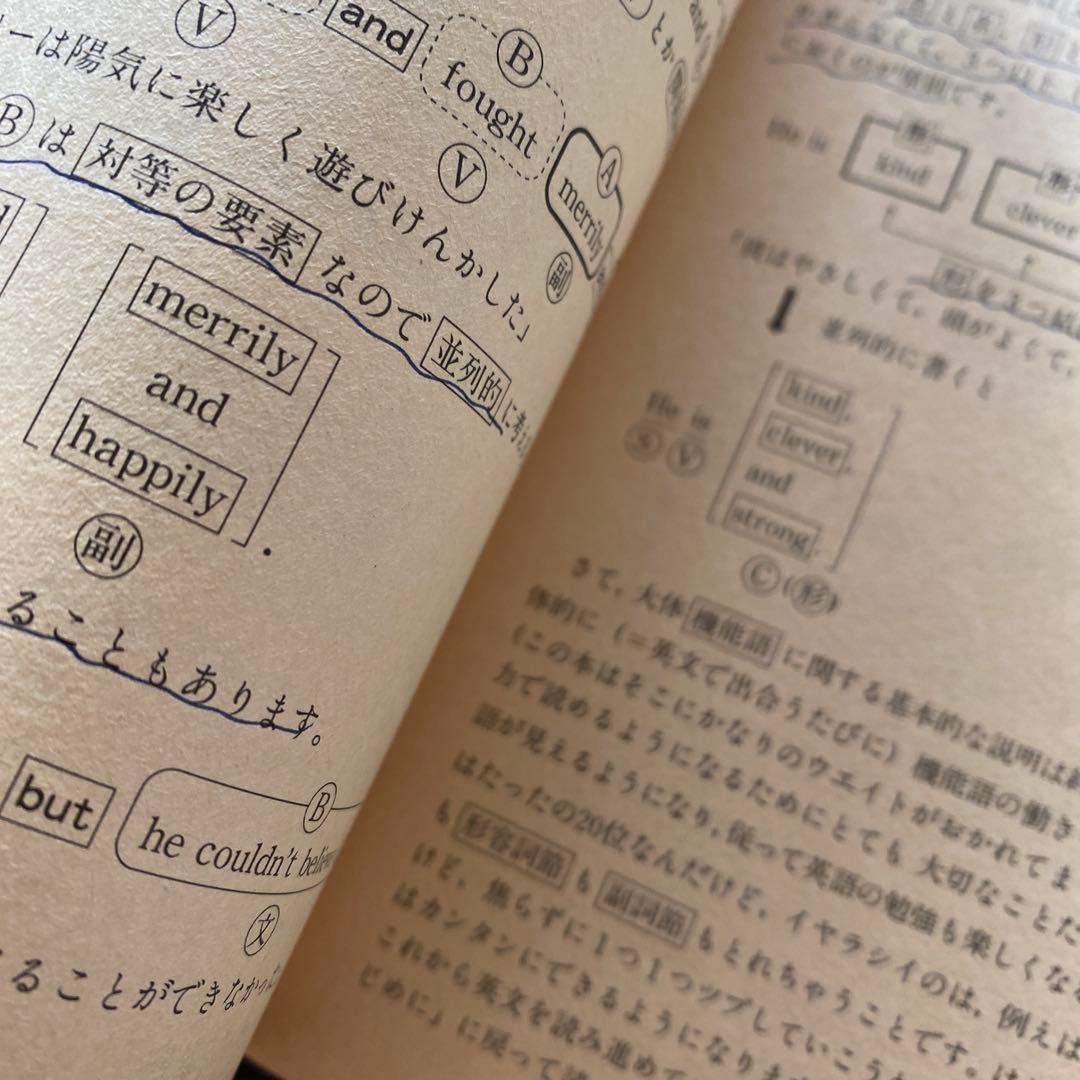 and
Ⓑ
fought
Ⓥ
Ⓥ
Ⓐ
merrily
副
ーは陽気に楽しく遊びけんかした」
Ⓑは対等の要素なので並列的に考
merrily
and
happily
.
副
ることもあります。
but
Ⓑ
he couldn't
文
ることができなかった
とか
He is
形
kind
clever
「彼はやさしくて，頭がよくて，
並列的に書くと
He is
Ⓢ Ⓥ
kind,
clever,
and
strong.
Ⓒ(形)
さて，大体機能語に関する基本的な説明は
体的に（＝英文で出合うたびに）機能語の働き
（この本はそこにかなりのウエイトがおかれてま
力で読めるようになるためにとても大切なことだ
語が見えるようになり，従って英語の勉強も楽しくな
はたったの20位なんだけど，イヤラシイのは，例えば
も形容詞節も副詞節もとれちゃうことです。は
けど，焦らずに1つ1つツブしていこう
はカンタンにできるようになりま
これから英文を読み進めて
じめに」に戻って